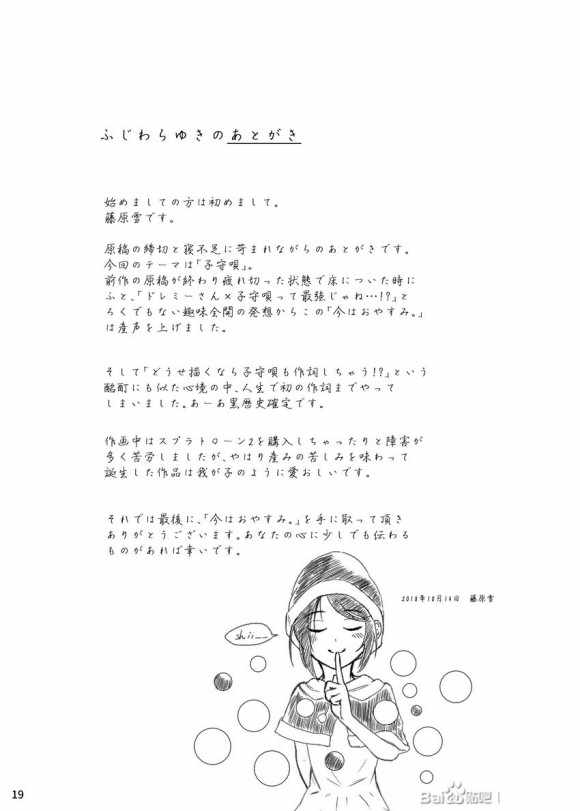 ふじわらゆきのあとがき
始めましての方は初めまして。
藤原雪です。
原稿の締切と寝不足に苛まれながらのあとがきです。
今回のテーマは「子守唄」。
前作の原稿が終わり疲れ切った状態で床についた時に
ふと、「ドレミーさん×子守唄って最強じゃね…!?」と
ろくでもない趣味全開の発想からこの「今はおやすみ。」
は産声を上げました。
そして「どうせ描くなら子守唄も作詞しちゃう!?」という
酩酊にも似た心境の中、人生で初の作詞までやって
しまいました。あーあ黒歴史確定です。
作画中はスプラトゥーン2を購入しちゃったりと障害が
多く苦労しましたが、やはり産みの苦しみを味わって
誕生した作品は我が子のように愛おしいです。
それでは最後に、「今はおやすみ。」を手に取って頂き
ありがとうございます。あなたの心に少しでも伝わる
ものがあれば幸いです。
2018年10月14日 藤原雪
shii__
19
Bai 贴吧